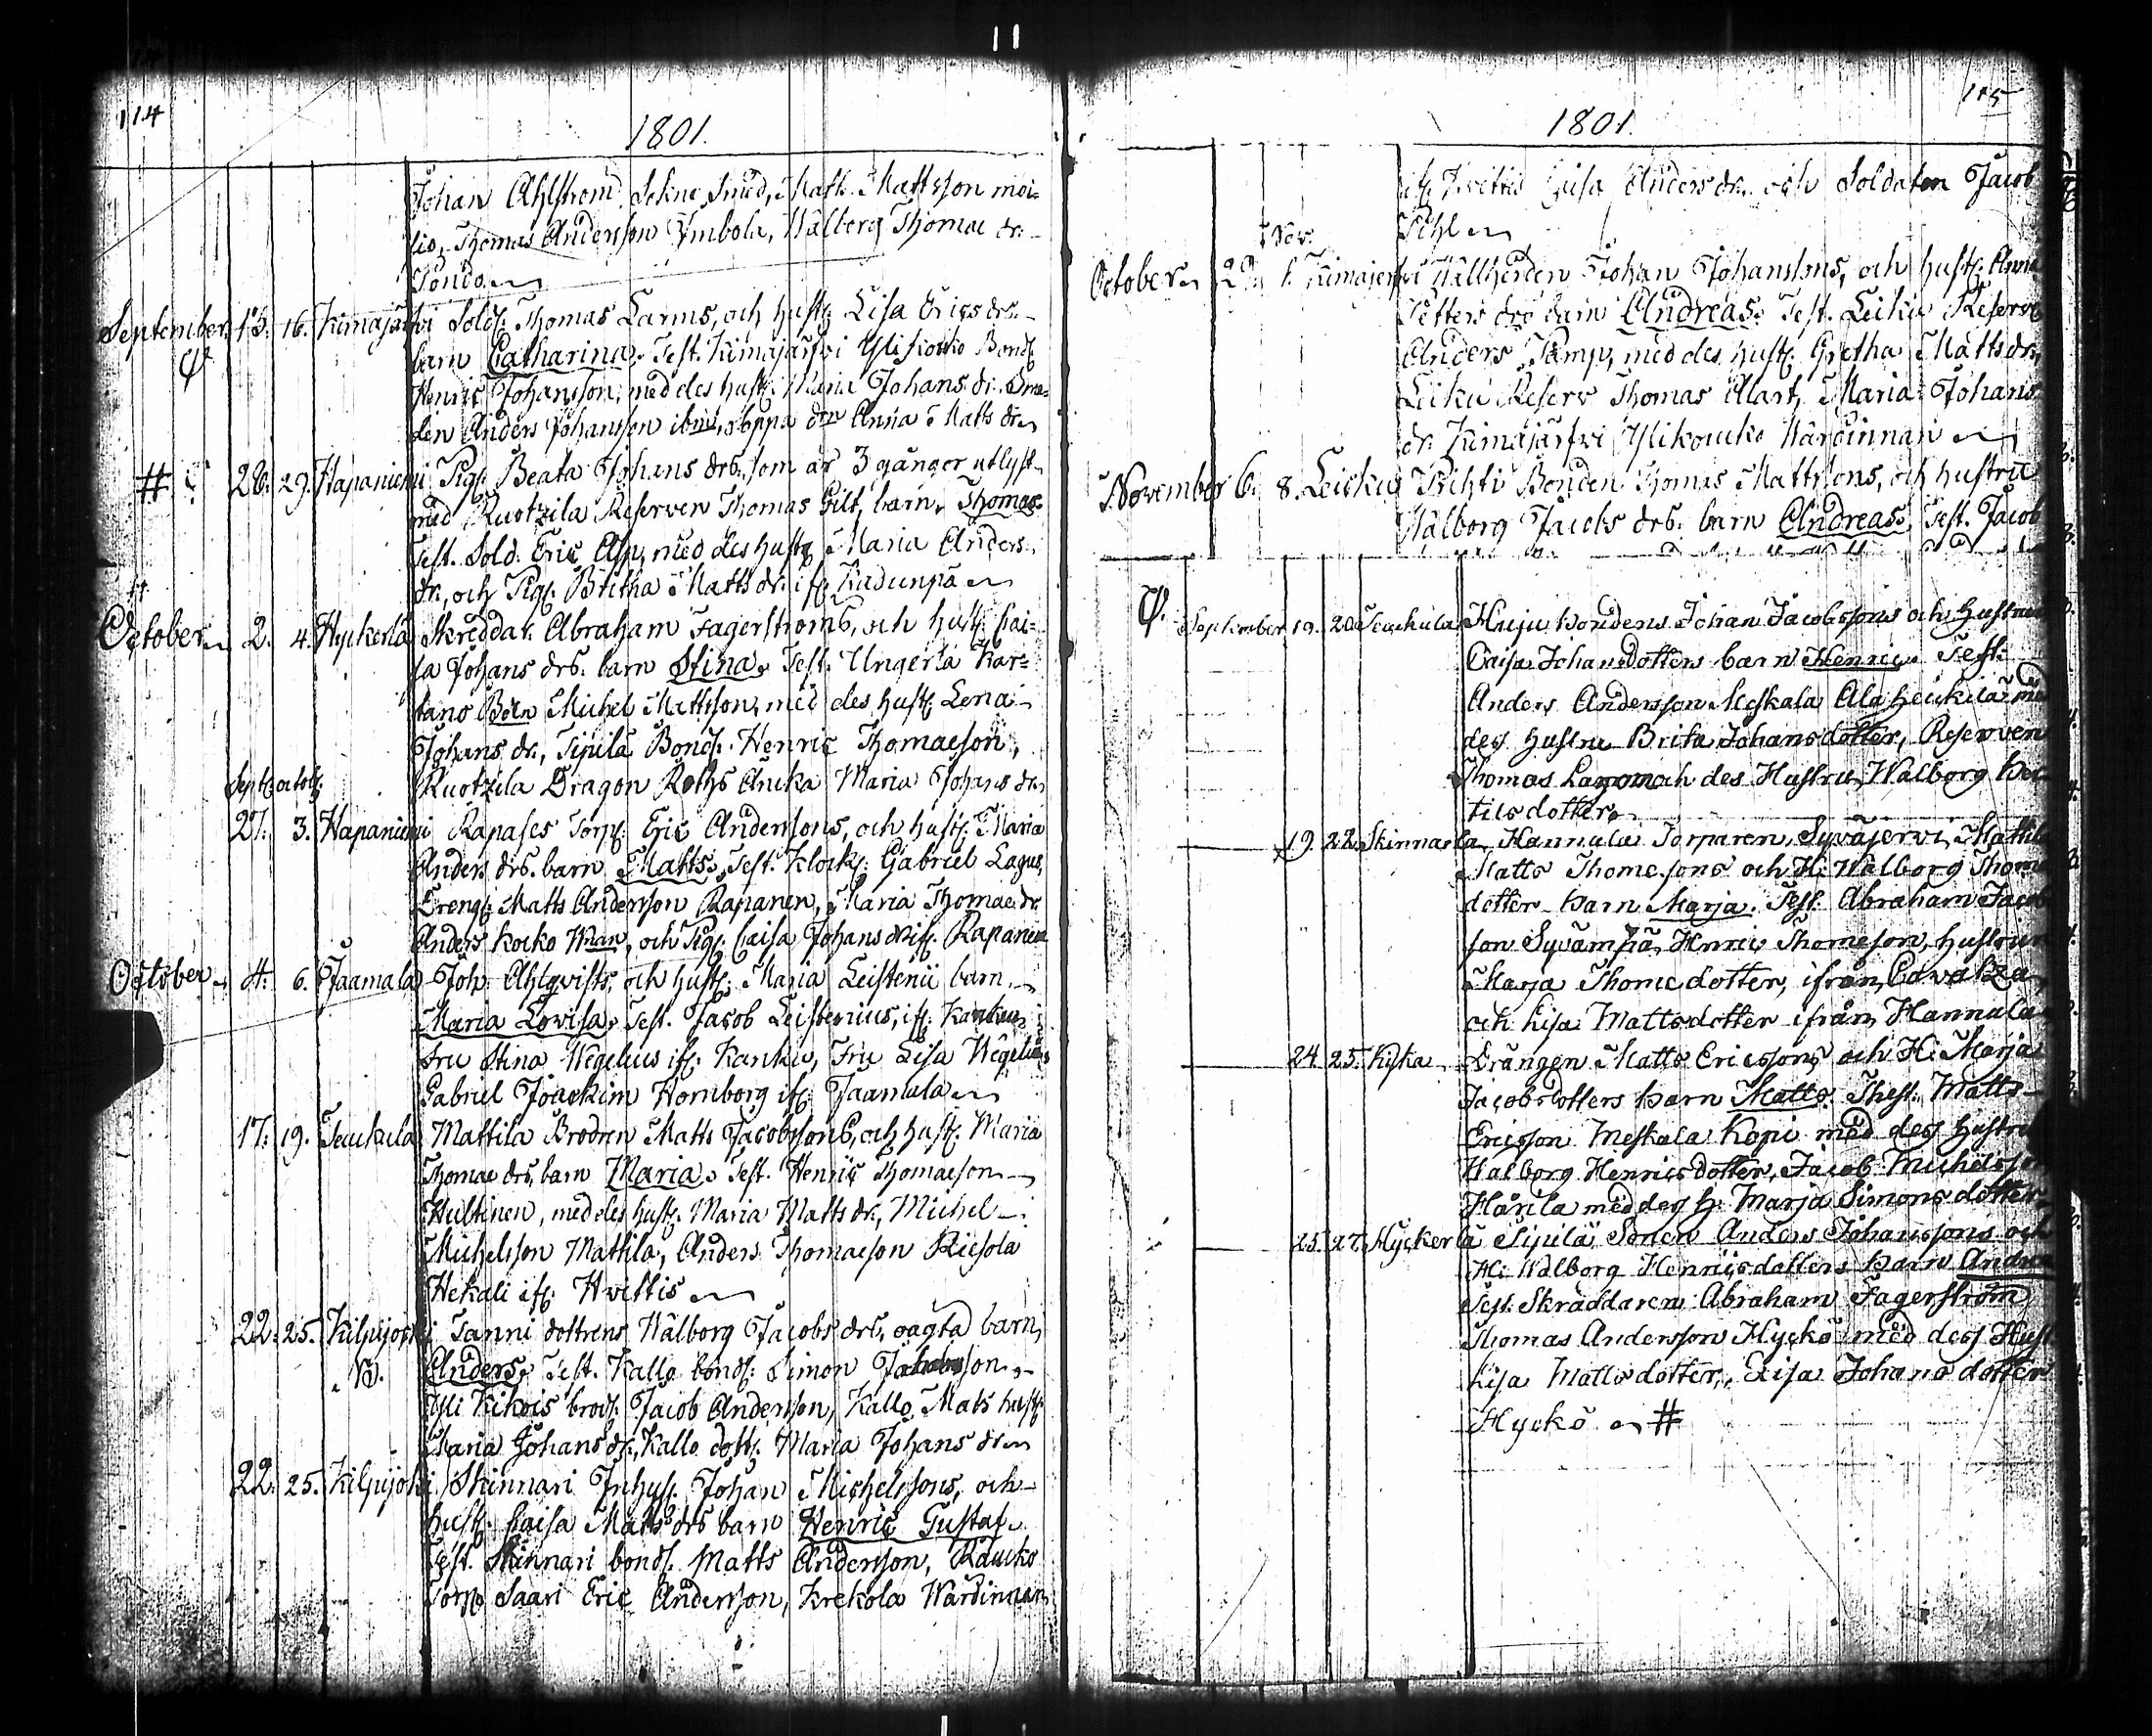 114
1801.
Johan Ahlström, Sokne Smed, Math. Mattsson moi-
sio, Thomas Andersson Ymbola, Walborg Thomae dr.
September 13. 16. Kimajärfvi Sold. Thomas Larms, och hust. Lisa Erics drs.
barn Catharina. Test. Kimajärfvi Ylikouko Bond.
Henric Johansson, med des hust. Maria Johans dr. Sme-
den Anders Johansson ibm, Anna Matts dr.
# 26. 29. Hapaniemi Pig. Beata Johans drs. som är 3 gånger utlyst
med Ruotzila Reserven Thomas Gilt, barn, Thomas.
Test. Sold. Eric Alm, med des hust. Maria Anders
dr., och Pig. Britha Matts dr. if.
October 2. 4. Hyckerlä Skreddar. Abraham Fagerströms, och hust. Cai-
sa Johans drs. barn Stina. Test. Ungerla Kar-
tano Bdn Michel Mattsson, med des hust. Lena
Johans dr., Sipilä Bond. Henric Thomaeson,
Ruotzila Dragon Roths Änka Maria Johans dr
Sept. octob.
27. 3. Hapaniemi Rapases Torp. Eric Anderssons, och hust. Maria
Anders drs. barn Matts. Test. Klock. Gabriel Lagus,
Dreng. Matts Andersson Rapanen, Maria Thomae dr.
Anders Kocko, och Pig. Caisa Johans dr if. Rapanen
October 4. 6. Jaamala Joh. Ahlqvists, och hust. Maria Leistenii barn
Maria Lovisa. Test. Jacob Leistenius, if. Kanku,
Fru Stina Wegelius if. Kanku, Fru Lisa Wegelius
Gabriel Joackim Hornborg if. Jaamala
17. 19. Seuckula Mattila Brodren Matts Jacobssons, och hust. Maria
Thomae drs. barn Maria. Test. Henric Thomaeson
Hultinen, med des hust. Maria Matts dr., Michel
Michelsson Mattila, Anders Thomaeson Riesola
Hekali if. Hvittis
22. 25. Kilpijocki Tanni dottrens Wålborg Jacobs drs. oägta barn,
Anders. Test. Kallo bond. Simon
Yli Kikois brod. Jacob Andersson, Kallo Mats hust.
Maria Johans dr., Kallo dott. Maria Johans dr
22. 25. Kilpijoki Skinnari Inhys. Johan Michelssons, och
hust. Caisa Matts drs barn Henric Gustaf.
Test. Skinnari bond. Matts Andersson, Raucko
Torp. Saari Eric Andersson, Krekola Wärdinnan
115
1801.
if. Hvittis Caisa Anders dr. och Soldaten Jacob
Pihl
Nov.
October 29 1. Kimajerfvi Wallherden Johan Johanssons, och hust. Anna
Petters drs barn Andreas. Test. Leiku Reserv
Anders Kämp, med des hust. Gretha Matts dr,
Leiku Reserv Thomas Alart, Maria Johans
dr. Kimajärfvi Ylikoucko Wärdinnan
November 6. 8. Leicku Prihti Bonden Thomas Mattssons, och hustru
Wålborg Jacobs drs. barn Andreas. Test. Jacob
September 19. 20. Seuckula Huju bondens Johan Jacobssons och Hustrus
Caisa Johansdotters barn Henric. Test.
Anders Andersson Meskala Ala Heickilä med
des Hustru Brita Johansdotter, Reserven
Thomas och des Hustru Walborg Ber-
tilsdotter.
19. 22. Skinnarla Hannula Torparen, Syväjervi Mattila
Matts Thomessons och H. Walborg Thome
dotter barn Marja. Test. Abraham Jacob
son Syvämpä, Henric Thomeson, hustrun
Marja Thome dotter, ifrån
och Lisa Mattsdotter ifrån Hannula
24 25. Kiska Drängen Matts Ericssons och H. Marja
Jacobsdotters barn Matts. Thest. Matts
Ericsson Meskala Kopi med dess hustru
Walborg Henricsdotter, Jacob Michelsson
Hårila med des H. Marja Simons dotter
25. 27. Hyckerlä Sipilä Sonen Anders Johanssons och
H. Walborg Henricsdotters barn Andreas
Test. Skräddaren Abraham Fagerström
Thomas Andersson Hyckö med dess Hust
Lisa Mattsdotter, Lisa Johans dotter
Hyckö #